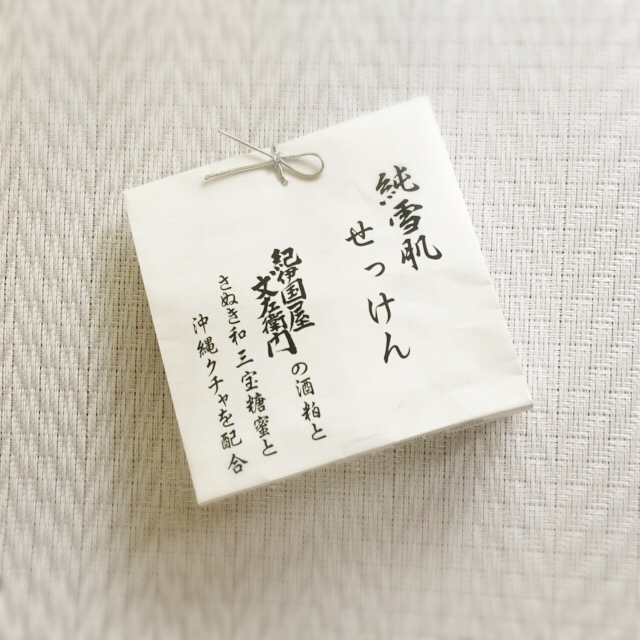 純雪肌
せっけん
紀伊国屋文左衛門の酒粕と
さぬき和三宝糖蜜と
沖縄クチャを配合